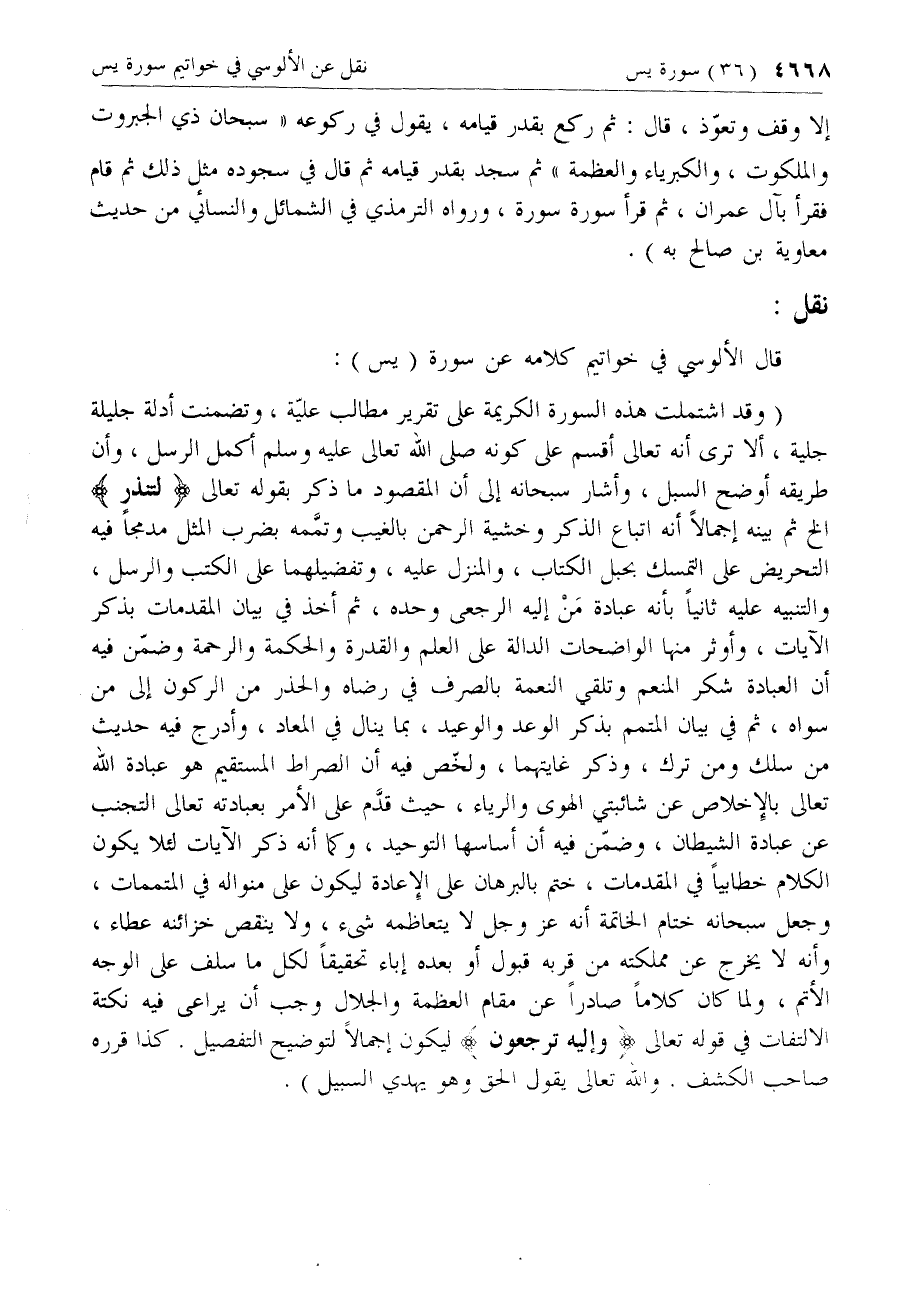 ٤٦٦٨ ( ٣٦ ) سورة يس نقل عن الألوسي في خواتيم سورة يس
إلا وقف وتعوّذ ، قال : ثم ركع بقدر قيامه ، يقول في ركوعه « سبحان ذي الجبروت
والملكوت ، والكبرياء والعظمة » ثم سجد بقدر قيامه ثم قال في سجوده مثل ذلك ثم قام
فقرأ بآل عمران ، ثم قرأ سورة سورة ، ورواه الترمذي في الشمائل والنسائي من حديث
معاوية بن صالح به ) .
نقل :
قال الألوسي في خواتيم كلامه عن سورة ( يس ) :
( وقد اشتملت هذه السورة الكريمة على تقرير مطالب عليّة ، وتضمنت أدلة جليلة
جلية ، ألا ترى أنه تعالى أقسم على كونه صلى الله تعالى عليه وسلم أكمل الرسل ، وأن
طريقه أوضح السبل ، وأشار سبحانه إلى أن المقصود ما ذكر بقوله تعالى ﴿ لتنذر ﴾
الخ ثم بينه إجمالاً أنه اتباع الذكر وخشية الرحمن بالغيب وتمَّمه بضرب المثل مدمجاً فيه
التحريض على التمسك بحبل الكتاب ، والمنزل عليه ، وتفضيلهما على الكتب والرسل ،
والتنبيه عليه ثانياً بأنه عبادة مَنْ إليه الرجعى وحده ، ثم أخذ في بيان المقدمات بذكر
الآيات ، وأوثر منها الواضحات الدالة على العلم والقدرة والحكمة والرحمة وضمّن فيه
أن العبادة شكر المنعم وتلقي النعمة بالصرف في رضاه والحذر من الركون إلى من
سواه ، ثم في بيان المتمم بذكر الوعد والوعيد ، بما ينال في المعاد ، وأدرج فيه حديث
من سلك ومن ترك ، وذكر غايتهما ، ولخّص فيه أن الصراط المستقيم هو عبادة الله
تعالى بالإخلاص عن شائبتي الهوى والرياء ، حيث قدَّم على الأمر بعبادته تعالى التجنب
عن عبادة الشيطان ، وضمّن فيه أن أساسها التوحيد ، وكما أنه ذكر الآيات لئلا يكون
الكلام خطابياً في المقدمات ، ختم بالبرهان على الإعادة ليكون على منواله في المتممات ،
وجعل سبحانه ختام الخاتمة أنه عز وجل لا يتعاظمه شيء ، ولا ينقص خزائنه عطاء ،
وأنه لا يخرج عن مملكته من قربه قبول أو بعده إباء تحقيقاً لكل ما سلف على الوجه
الأتم ، ولما كان كلاماً صادراً عن مقام العظمة والجلال وجب أن يراعى فيه نكتة
الالتفات في قوله تعالى ﴿ وإليه ترجعون ﴾ ليكون إجمالاً لتوضيح التفصيل . كذا قرره
صاحب الكشف . والله تعالى يقول الحق وهو يهدي السبيل ) .